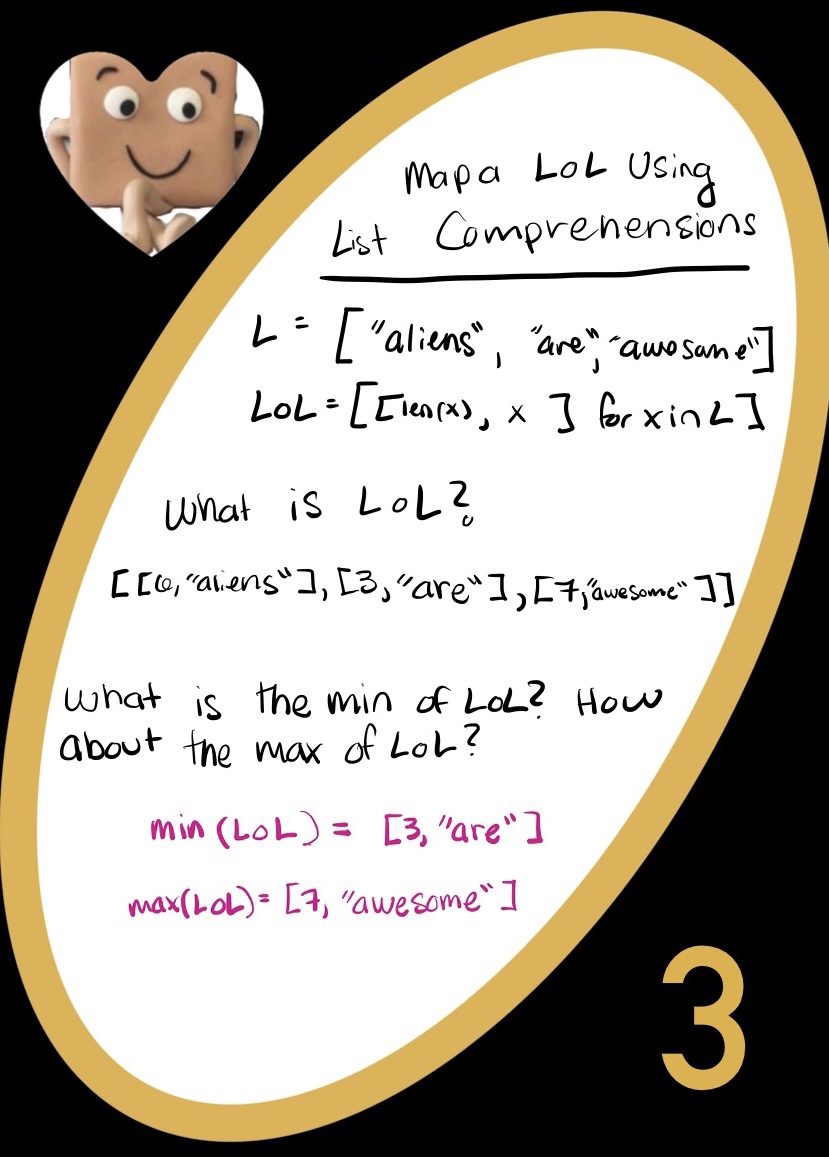 Map a LoL Using
List Comprehensions
L = ["aliens", "are", "awosame"]
LoL = [[len(x), x ] for x in L]
What is LoL?
[[6, "aliens"], [3, "are"], [7, "awesome"]]
What is the min of LoL? How
about the max of LoL?
min (LoL) = [3, "are"]
max(LoL) = [7, "awesome"]
3